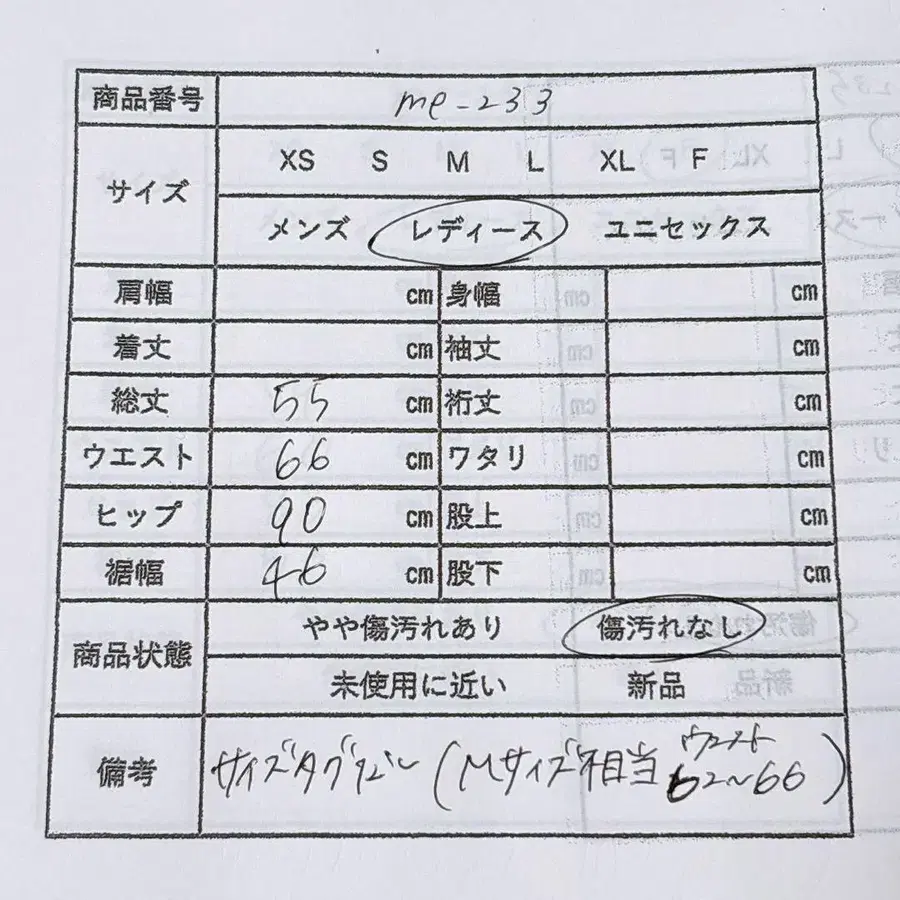 商品番号 me-233
サイズ XS S M L XL F
メンズ レディース ユニセックス
肩幅 cm 身幅 cm
着丈 cm 袖丈 cm
総丈 55 cm 裄丈 cm
ウエスト 66 cm ワタリ cm
ヒップ 90 cm 股上 cm
裾幅 46 cm 股下 cm
商品状態 やや傷汚れあり 傷汚れなし
未使用に近い 新品
備考 サイズタグなし(Mサイズ相当 ウエスト 62~66)